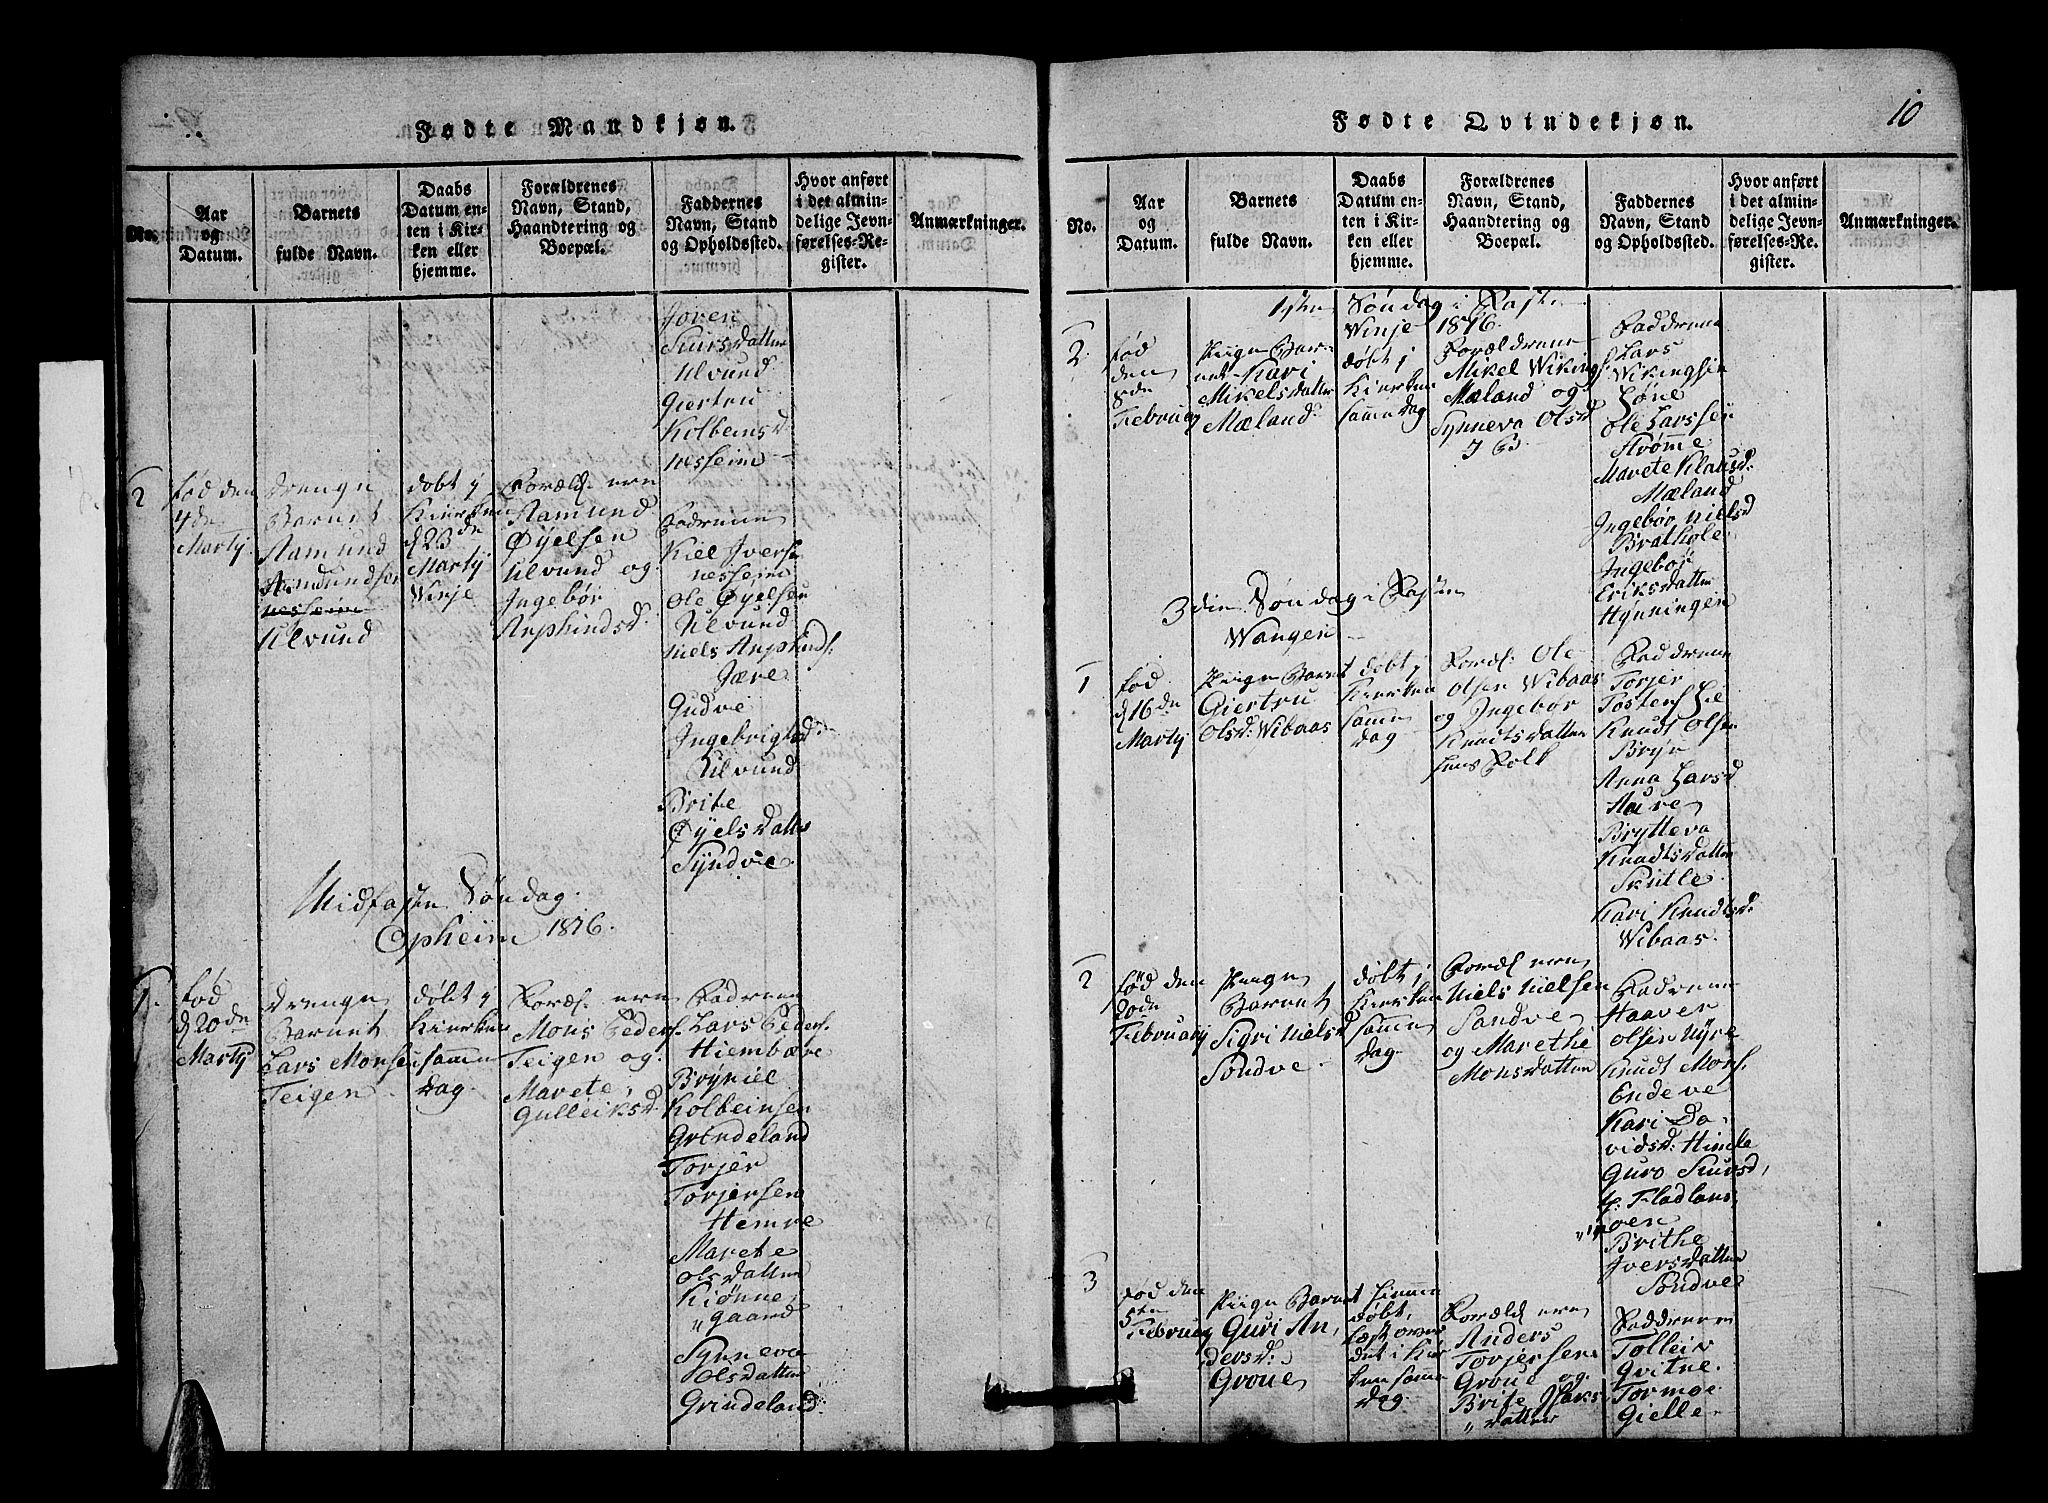 Fødte Mandkjøn.
No.
Aar
og
Datum.
Barnets
fulde Navn.
Daabs
Datum en-
ten i Kir-
ken eller
hjemme.
Forældrenes
Navn, Stand,
Haandtering og
Boepæl.
Faddernes
Navn, Stand
og Opholdssted.
Hvor anført
i det almin-
delige Jevn-
førelses-Re-
gister.
Anmærkninger.
Joren
Siursdatter
Ulvund
Giertru
Kolbeinsd
Nesheim
2
fød den
4de
Martij
Drenge
Barnet
Aamund
Aamundsen
Ulvund
døbt i
Kierken
d 23de
Martij
Winje
Foræld: ere
Aamund
Øyelsen
Ulvund og
Ingebør
Arphindsd.
Fadrene
Kiel Iversen
Nesheim
Ole Øyelsen
Ulvund
Niels Arphinds:
Jære
Gudve
Ingebrigtsd:
Ulvund
Brite
Øyelsdatter
Tyndvie.
Midfasten Søndag
Opheim 1816.
1.
fød
d 20de
Martij
Drenge
Barnet
Lars Monsen
Teigen
døbt i
Kierken
samme
Dag
Foræl: ere
Mons Peders:
Teigen og
Marete
Gulleiksd.
Fadrene
Lars Peders:
Hiembære
Bryniel
Kolbeinsen
Grindeland
Torjer
Torjersen
Hemre
Marete
olsdatter
Kiønne
"gaard
Synneva
olsdatter
Grindeland.
Fødte Qvindekjøn.
10
No.
Aar
og
Datum.
Barnets
fulde Navn.
Daabs
Datum en-
ten i Kir-
ken eller
hjemme.
Forældrenes
Navn, Stand,
Haandtering og
Boepæl.
Faddernes
Navn, Stand
og Opholdssted.
Hvor anført
i det almin-
delige Jevn-
førelses-Re-
gister.
Anmærkninger.
1ste Søndag i Fast
Winje 1816.
2.
fød
den
8de
Februarij
Piige Bar-
net Kari
Mikelsdatter
Mæland
døbt i
Kierken
samme
dag
Forældrene
Mikel Wikings
Mæland og
Synneva Olsd
Faddrene
Lars
Wikingsen
Løne
Ole Larssen
Strømme
Marete Klausd:
Mæland
Ingebør Nielsd
Brathole
Ingebør
Eriksdatter
Hynningen
3die Søndag i Fasten
Wangen
1
fød
d 16de
Martij
Piige Barnet
Giertru
olsd: Wibaas
døbt i
Kierken
samme
dag
Foræl: Ole
olsen Wibaas
og Ingebør
Knudtsdatter
huus Folk
Faddrene
Torjer
Tostens Lie
Knudt Olsen
Bryn
Anna Larsd
Aure
Brytteva
Knudtsdatter
Skutle
Kari Knudtsd:
Wibaas.
2
fød den
20de
Februarij
Piige
Barnet
Sigri Nielsd
Sondve
døbt i
Kierken
samme
Dag
Foræl ere
Niels Nielsen
Sondve
og Marethe
Monsdatter
Fadrene
Haaver
olsen Nyre
Knudt Mons.
Endeve
Kari Da-
vidsd: Hincle
Guro Siursd,
Brithe
Iversdatter
Sondve
3
fød den
5te
Februarij
Piige Barnet
Guri An,
dersd:
Groue
Hiemme
døbt,
læst over
det i Kier
ken samme
Dag
Foræld ere
Anders
Torjersen
Groue og
Brite Isaks
"datter
Faddrene
Tolleiv
Gvitne
Tormoe
Gielle